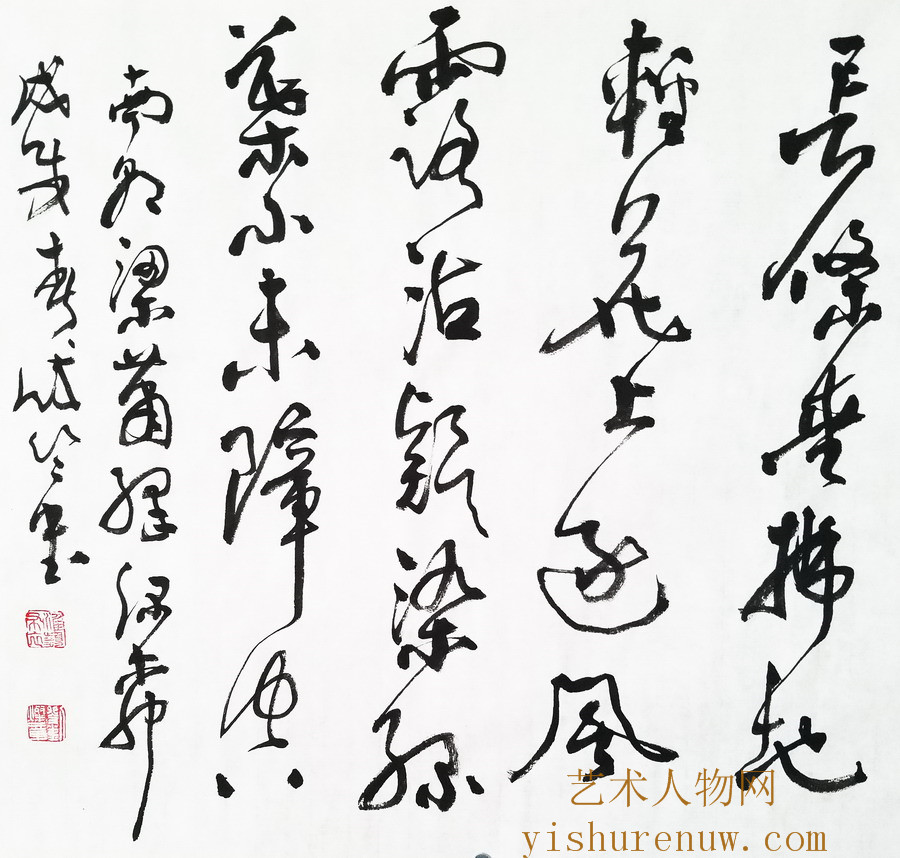 長條垂拂地
輕花上逐風
露沾疑染緑
葉小未障空
南朝梁蕭繹緑柳
戊戌春書
艺术人物网
yishurenuw.com